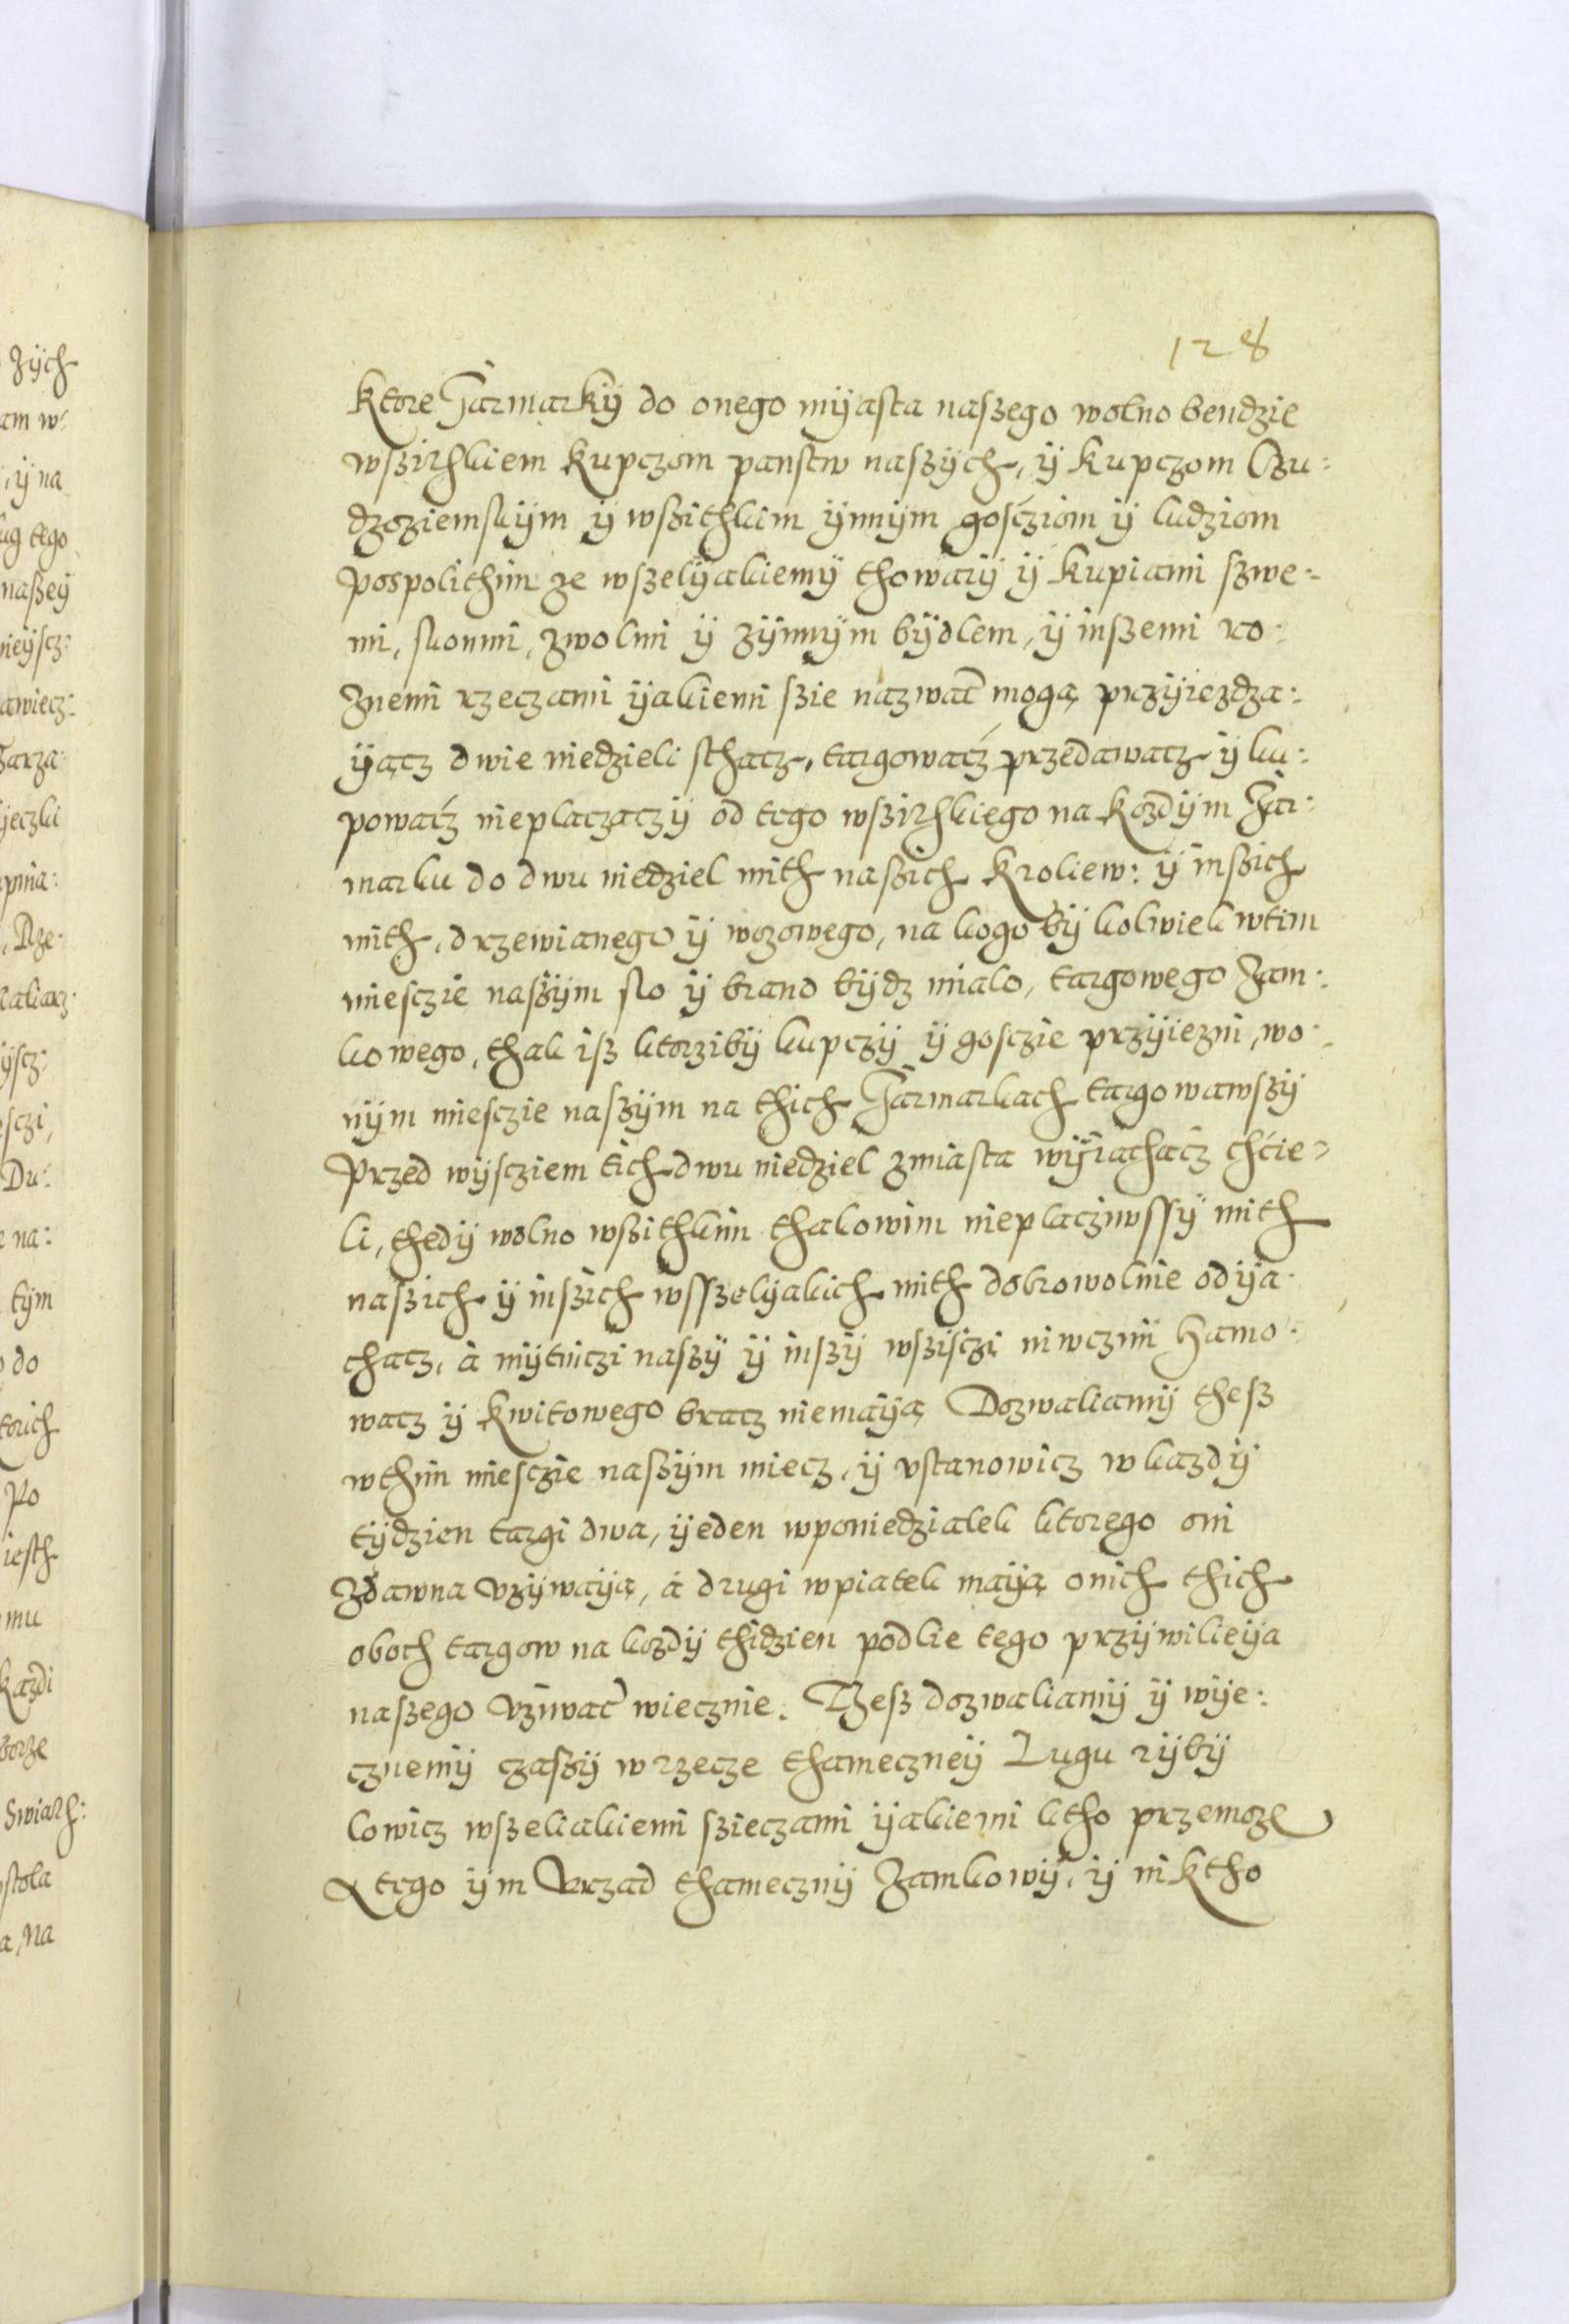 128
Ktore Jarmarky do onego myasta naszego wolno bendzie
wszithkiem kupczom panstw naszych, ÿ kupczom Czu:
dzoziemskÿm ÿ wszithkim ÿnnÿm gosćziom ÿ ludziom
pospolithim ze wszelÿakiemÿ thowarÿ ÿ kupiami szwe:
mi, konmi, zwolmi ÿ zÿnnÿm bÿdlem, ÿ inszemi ro:
znemi rzeczami ÿakiemi szie nazwać mogą przÿiezdza:
ÿącz dwie niedzieli sthacz, targowaćz przedawacz ÿ ku:
powaćz nieplaczączÿ od tego wszithkiego na kozdÿm Jar:
marku do dwu niedziel mith naszich Kroliew: ÿ inszich
mith, drzewianego ÿ wozowego, na kogo bÿ kolwiek wtim
miesczie naszÿm slo ÿ brano bÿdz mialo, targowego Zam:
kowego, thak isz ktorzibÿ kupczÿ ÿ gosczie przÿiezni, wo:
nÿm miesczie naszÿm na thich Jarmarkach targowawszÿ
Przed wÿsciem tich dwu niedziel zmiasta wÿiachaćz chćie:
li, thedÿ wolno wszithkim thakowim nieplacziwssÿ mith
naszich ÿ inszich wsszelÿakich mith dobrowolnie odÿa:
chacz, à mÿtniczi naszÿ ÿ inszÿ wsziśczi niwczim Hamo:
wacz ÿ Kwitowego bracz niemaÿą Dozwaliamÿ thesz
wthim miesczie naszÿm miecz, ÿ vstanowicz w kazdÿ
tÿdzien targi dwa, ÿeden wponiedzialek ktorego oni
Zdawna vzÿwaÿą, á drugi wpiatek maÿą onich thich
oboch targow na kozdÿ thidzien podlie tego przÿwilieÿa
naszego vzÿwać wiecznie. Thesz dozwaliamÿ ÿ wÿe:
cznemÿ czaszÿ w rzecze thamecznеÿ Lugu rÿbÿ
lowicz wszeliakiemi szieczami ÿakiemi ktho przemoze
tego ÿm Vrzad thamecznÿ Zamkowÿ, ÿ niktho